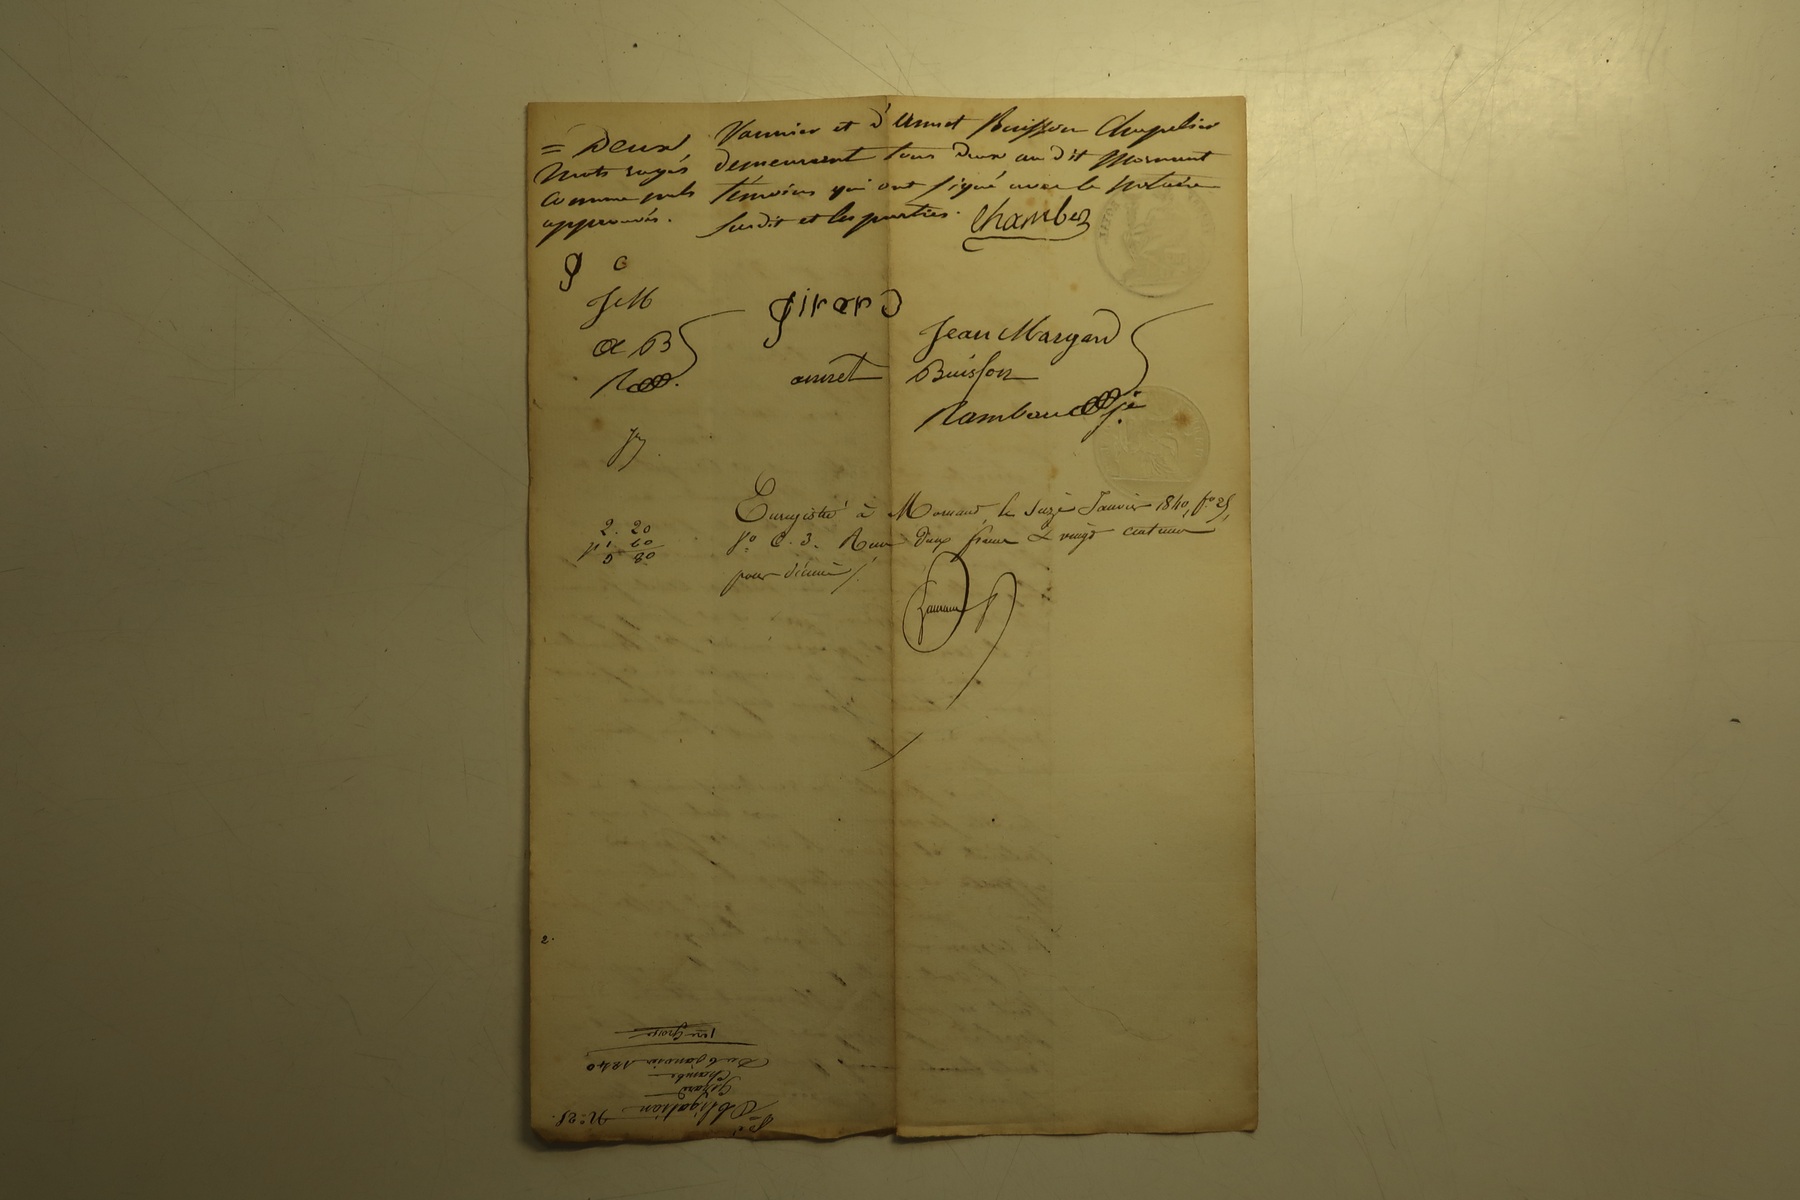 = Deux
mots rayés
comme nuls
approuvés.
Vannier et d'Annet Buisson Chapelier
demeurant tous deux au dit Mornant
témoins qui ont signé avec le notaire
susdit et les parties. Chambe
g c
J M
a B
R
girard
Jean Margand
annet Buisson
Rambau
Enregistré à Mornant, le seize Janvier 1840, f° 25,
v° C. 3. Reçu deux francs & vingt centimes
pour décime
2. 20
Obligation N° 25.
Girard
Chambe
Du 6 janvier 1840
1ere Grosse
2.